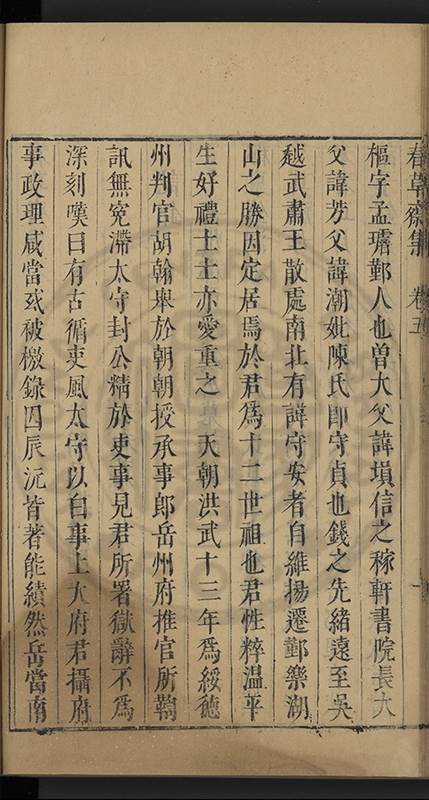 春草齋集　卷五
樞字孟璿鄞人也曾大父諱塤信之稼軒書院長大
父諱芳父諱潮妣陳氏卽守貞也錢之先緒遠至吳
越武肅王散處南北有諱守安者自維揚遷鄞樂湖
山之勝因定居焉於君爲十二世祖也君性粹溫平
生好禮士士亦愛重之　天朝洪武十三年爲綏德
州判官胡翰舉於朝朝授承事郎岳州府推官所鞫
訊無寃滯太守封公精於吏事見君所署獄辭不爲
深刻嘆曰有古循吏風太守以白事上大府君攝府
事政理咸當或被檄錄囚辰沅皆著能績然岳當南